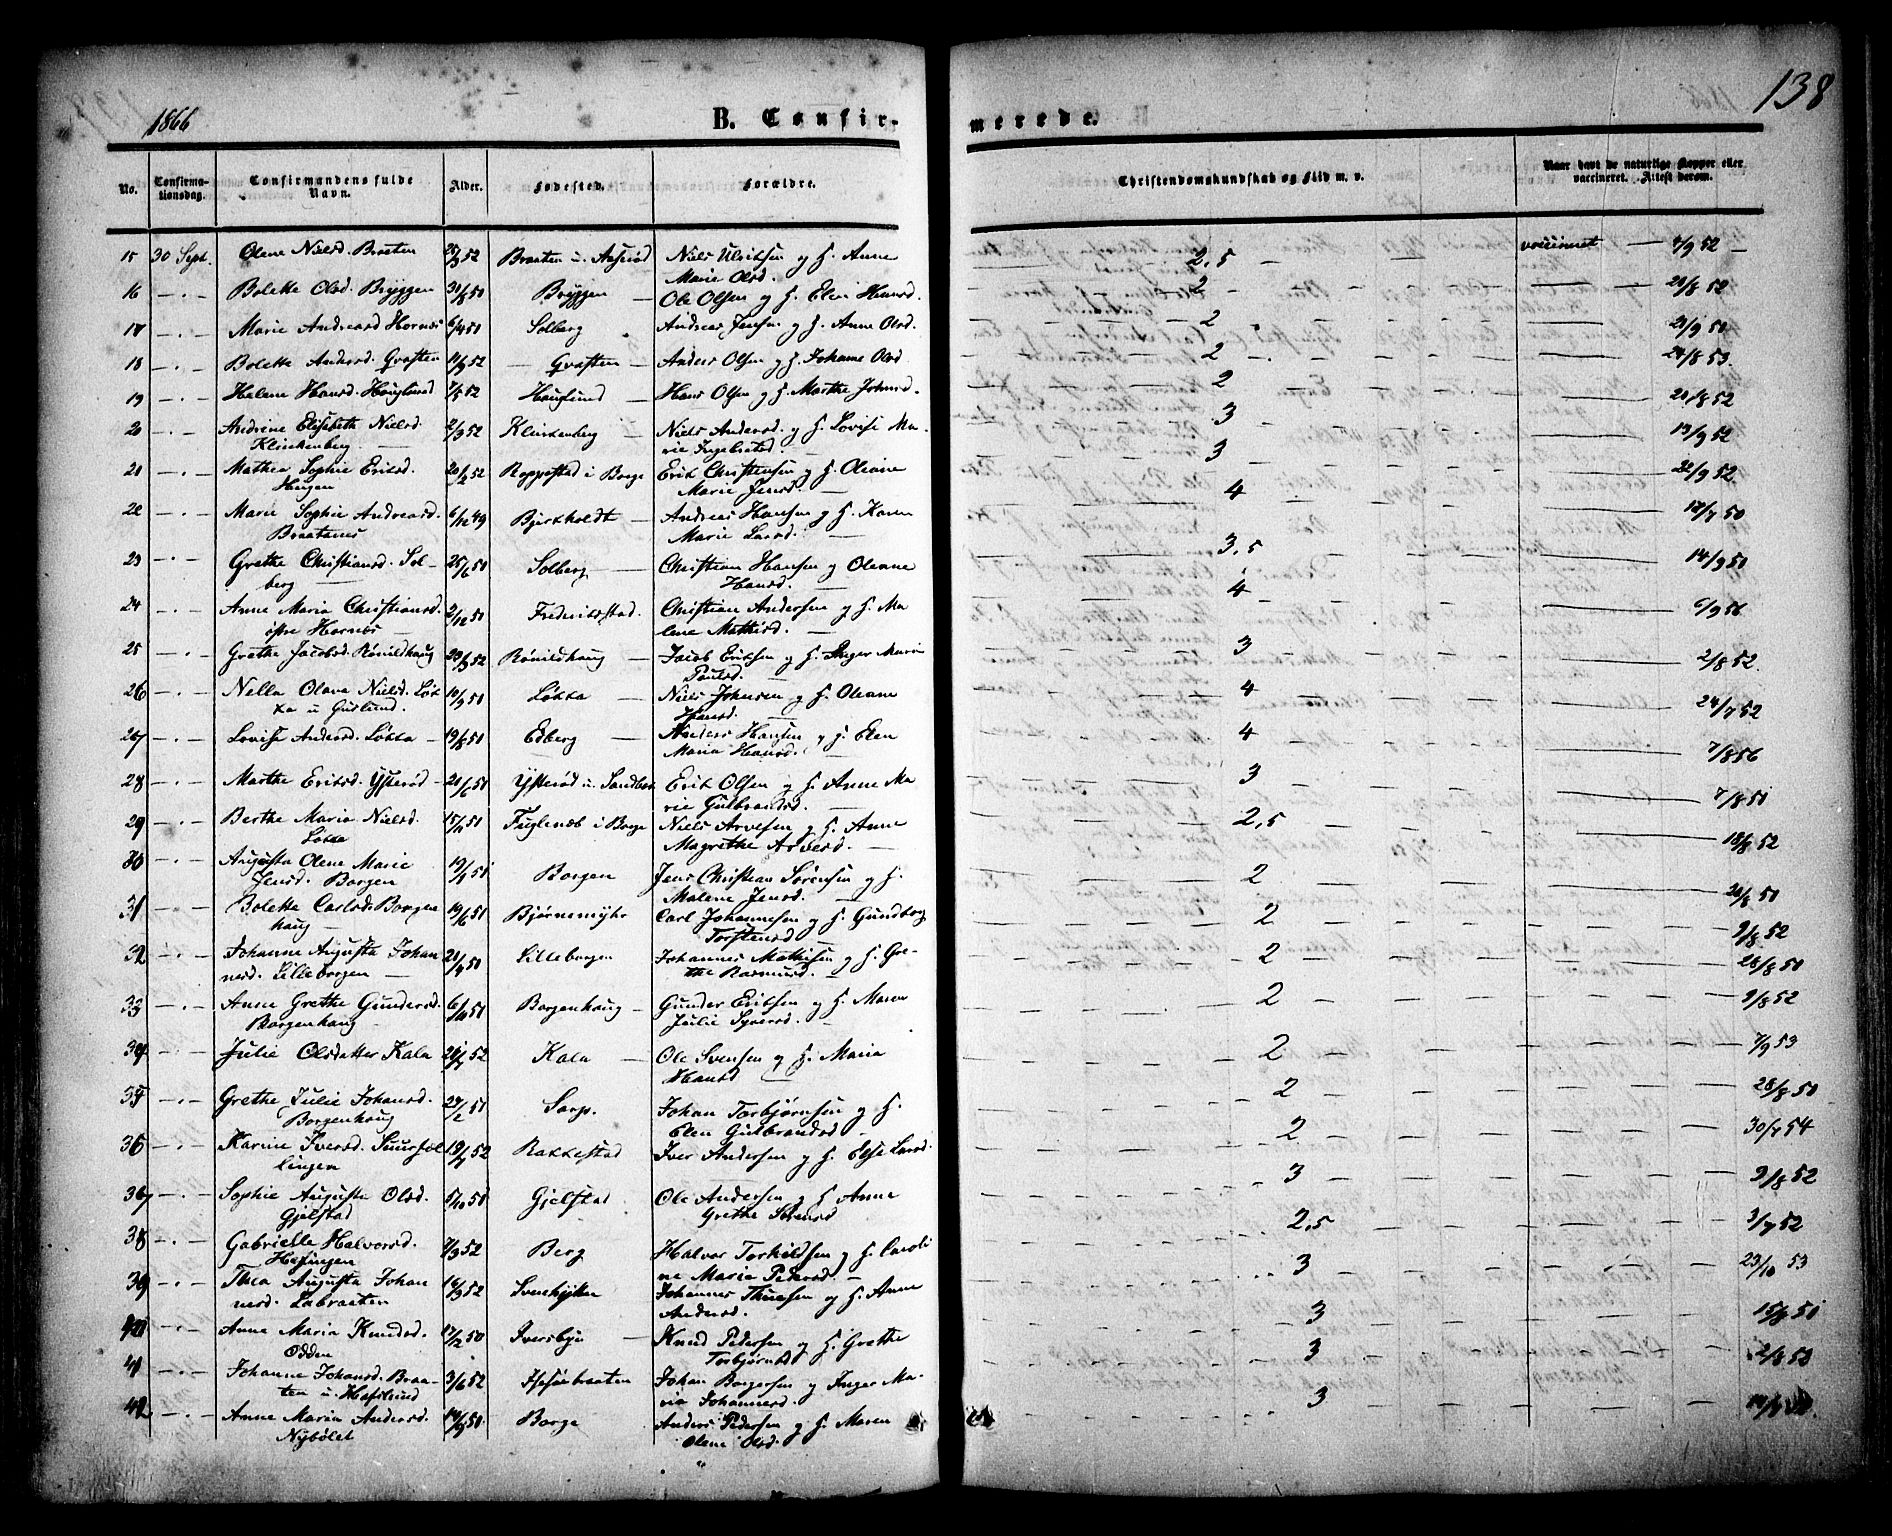 1866
B. Confir-
merede.
138
No.
Confirma-
tionsdag.
Confirmandens fulde
Navn.
Alder.
Fødested.
Forældre.
Christendomskundskab og Flid m. v.
Naar havt de naturlige Kopper eller
vaccineret. Attest derom.
15 30 Sept. Olene Nielsd. Braaten 25/3 52 Braaten u. Niels Ulriksen og H. Anne 2,5 vaccineret 4/9 52
Marie Olsd.
16 Bolette Olsd. Bryggen 31/8 50 Bryggen Ole Olsen og H. Elen Hansd. 2 20/8 52
17 Marie Andreasd Hornæs 6/4 51 Solberg Andreas Jensen og H. Anne Olsd. 2 21/9 51
18 Bolette Andersd. 11/9 52 Anders Olsen og H. Johanne Olsd 2 24/8 53
19 Helene Hansd. Hauglund 7/5 52 Hauglund Hans Olsen og H. Marthe Johnsd. 2 20/8 52
20 Andrine Elisabeth Nielsd. 2/3 52 Klinkenberg Niels Andersd. og H. Lovise Ma- 3 13/9 52
Klinkenberg rie Ingebretsd.
21 Mathea Sophie Eriksd. 20/2 52 Roppestad i Borge Erik Christensen og H. Oleane 3 22/9 52
Haugen Marie Jensd.
22 Marie Sophie Andreasd. 6/12 49 Bjerkholdt Andreas Hansen og H. Karen 4 12/7 50
Marie Larsd.
23 Grethe Christiansd. Sol- 25/6 51 Solberg Christian Hansen og Oleane 3,5 14/9 50
berg Hansd.
24 Anne Maria Christiansd. 2/12 50 Frederikstad Christian Andersen og H. Ma 4 6/9 56
øfre Hornæs lene Mathisd.
25 Grethe Jacobsd. Rønildhaug 23/3 52 Rønildhaug Jacob Eriksen og H. Inger Marie 3 2/8 52.
Paulsd.
26 Nella Olava Nielsd. Løk 10/9 50 Løkka Niels Johnsen og H. Oleane 4 24/7 52
ka u Guslund. Hansd.
27 Lovise Andersd. Løkka 19/8 51 Edberg Anders Hansen og H. Elen 4 7/8 56
Maria Hansd.
28 Marthe Eriksd. Ysterød 21/6 51 Ysterød u. Sandbæk Erik Olsen og H. Anne Ma 3 7/8 51
rie Gulbrandsd.
29 Berthe Maria Nielsd. 15/11 51 Fuglenæb i Borge Niels Arvesen og H. Anne 2,5 18/8 52
Løkka Magrethe Arvesd.
30 Augusta Olene Marie Borgen Jens Christian Sørensen og H. 2 20/8 51
Jensd. Borgen Malene Jensd.
31 Bolette Carlsd. Borgen 19/6 51 Bjørnemyhr Carl Johannesen og H. Gundborg 2 9/8 52
haug Torstensd
32 Johanne Augusta Johan Lilleborgen Johannes Mathisen og H. Gre- 2 28/8 51
nesd. Lilleborgen the Rasmusd.
33 Anne Grethe Gundersd. 6/10 51 Borgenhaug Gunder Eriksen og H. Maren 2 9/8 52
Borgenhaug Julie Syversd.
34 Julie Olsdatter Kala Kala Ole Svensen og H. Maria 2 7/9 53
Hansd
35 Grethe Julie Johansd. 27/2 51 Sarp. Johan Torbjørnsen og H. 2 28/8 51
Borgenhaug Elen Gulbrandsd
36 Karine Iversd. Rakkestad Iver Andersen og H. Else Larsd. 2 30/7 54
lingen
37 Sophie Augusta Olsd. 5/10 51 Gjelstad Ole Andersen og H. Anne 3 9/8 52
Gjelstad Grethe Sørensd
38 Gabrielle Halvorsd. 7/3 52 Berg Halvor Torkildsen og H. Caroli 2,5 3/7 52
Hafingen ne Marie Pedersd.
39 Thea Augusta Johan Johannes og H. Anne 3 23/10 53
nesd. Labraaten Andersd.
40 Anne Maria Knudsd. Iversbye Knud Pedersen og H. Grethe 3 15/8 51
Odden Torbjørnsd
41 Johanne Johansd. Braa- 3/6 52 Johan Borgersen og Inger Ma- 3 2/8 53
ten u. Hafslund ria Johannesd.
42 Anne Maria Andersd. Borge Anders Pedersen og H. Maren 3
Nybølet Olene Olsd.